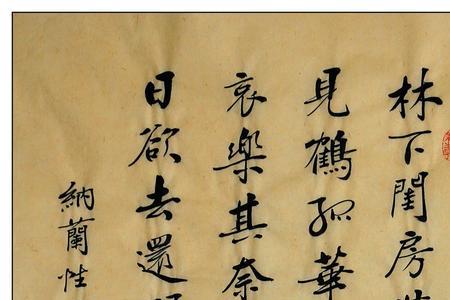 林下闺房
見鶴孤華
哀樂其奈
日欲去還
納蘭性